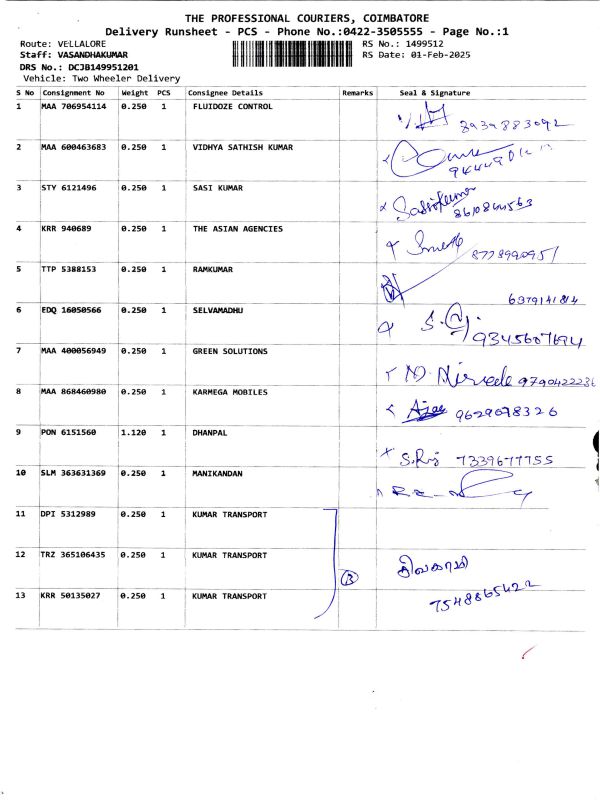 THE PROFESSIONAL COURIERS, COIMBATORE
Delivery Runsheet - PCS - Phone No.:0422-3505555 - Page No.:1
Route: VELLALORE RS No.: 1499512
Staff: VASANDHAKUMAR RS Date: 01-Feb-2025
DRS No.: DCJB149951201
Vehicle: Two Wheeler Delivery
S No Consignment No Weight PCS Consignee Details Remarks Seal & Signature
1 MAA 706954114 0.250 1 FLUIDOZE CONTROL 8939883092
2 MAA 600463683 0.250 1 VIDHYA SATHISH KUMAR
3 STY 6121496 0.250 1 SASI KUMAR Sasikumar
4 KRR 940689 0.250 1 THE ASIAN AGENCIES 8778990951
5 TTP 5388153 0.250 1 RAMKUMAR
6 EDQ 16050566 0.250 1 SELVAMADHU 9345607694
7 MAA 400056949 0.250 1 GREEN SOLUTIONS 9790422236
8 MAA 868460980 0.250 1 KARMEGA MOBILES 9629098326
9 PON 6151560 1.120 1 DHANPAL 7339677755
10 SLM 363631369 0.250 1 MANIKANDAN
11 DPI 5312989 0.250 1 KUMAR TRANSPORT
12 TRZ 365106435 0.250 1 KUMAR TRANSPORT சிவகாமி
13 KRR 50135027 0.250 1 KUMAR TRANSPORT 7548865422